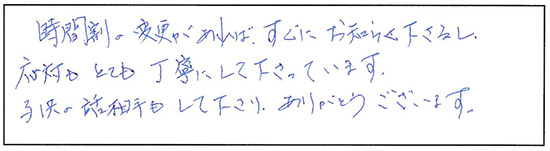 時間割の変更があれば、すぐにお知らせ下さるし、
応対もとても丁寧にして下さっています。
子供の話相手もして下さり、ありがとうございます。